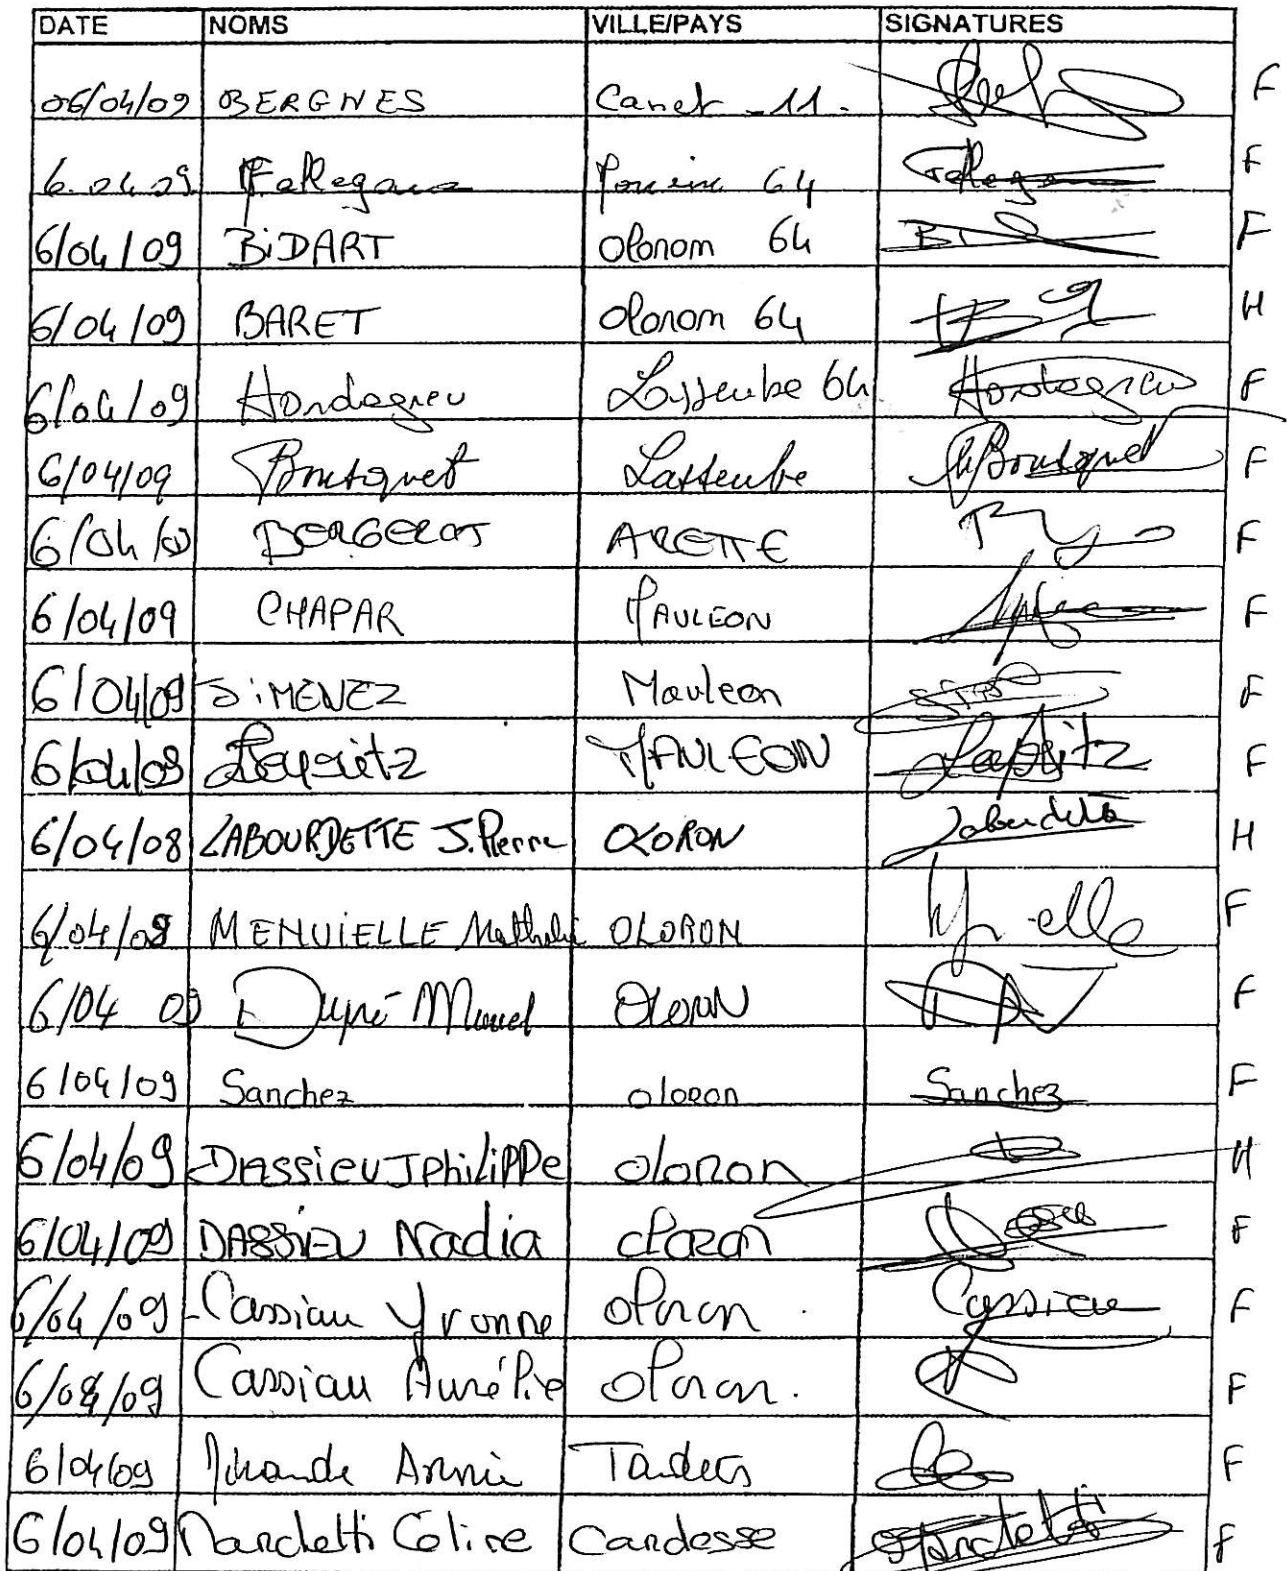 DATE NOMS VILLE/PAYS SIGNATURES
06/04/09 BERGNES Canet -11- F
6.04.09 64 F
6/04/09 BiDART Olonom 64 F
6/04/09 BARET Olonom 64 H
6/04/09 Hondagneu Lasseube 64 Hondagneu F
6/04/09 Bousquet Lasseube Bousquet F
6/04/09 BERGEROT ARETTE F
6/04/09 CHAPAR MAULEON F
6/04/09 JiMENEZ Mauleon F
6/04/09 MAULEON F
6/04/08 LABOURDETTE J.Pierre OLORON H
6/04/09 MENUiELLE Nathalie OLORON F
6/04 09 Dupré OLORON F
6/04/09 Sanchez oloron Sanchez F
6/04/09 DASSieu JPhiLiPPe oloron H
6/04/09 DASSiEU Nadia oloron F
6/04/09 Cassiau Yvonne oloron Cassiau F
6/04/09 Cassiau Aurélie oloron. F
6/04/09 Annie F
6/04/09 Marchetti Celine Candesse Marchetti F